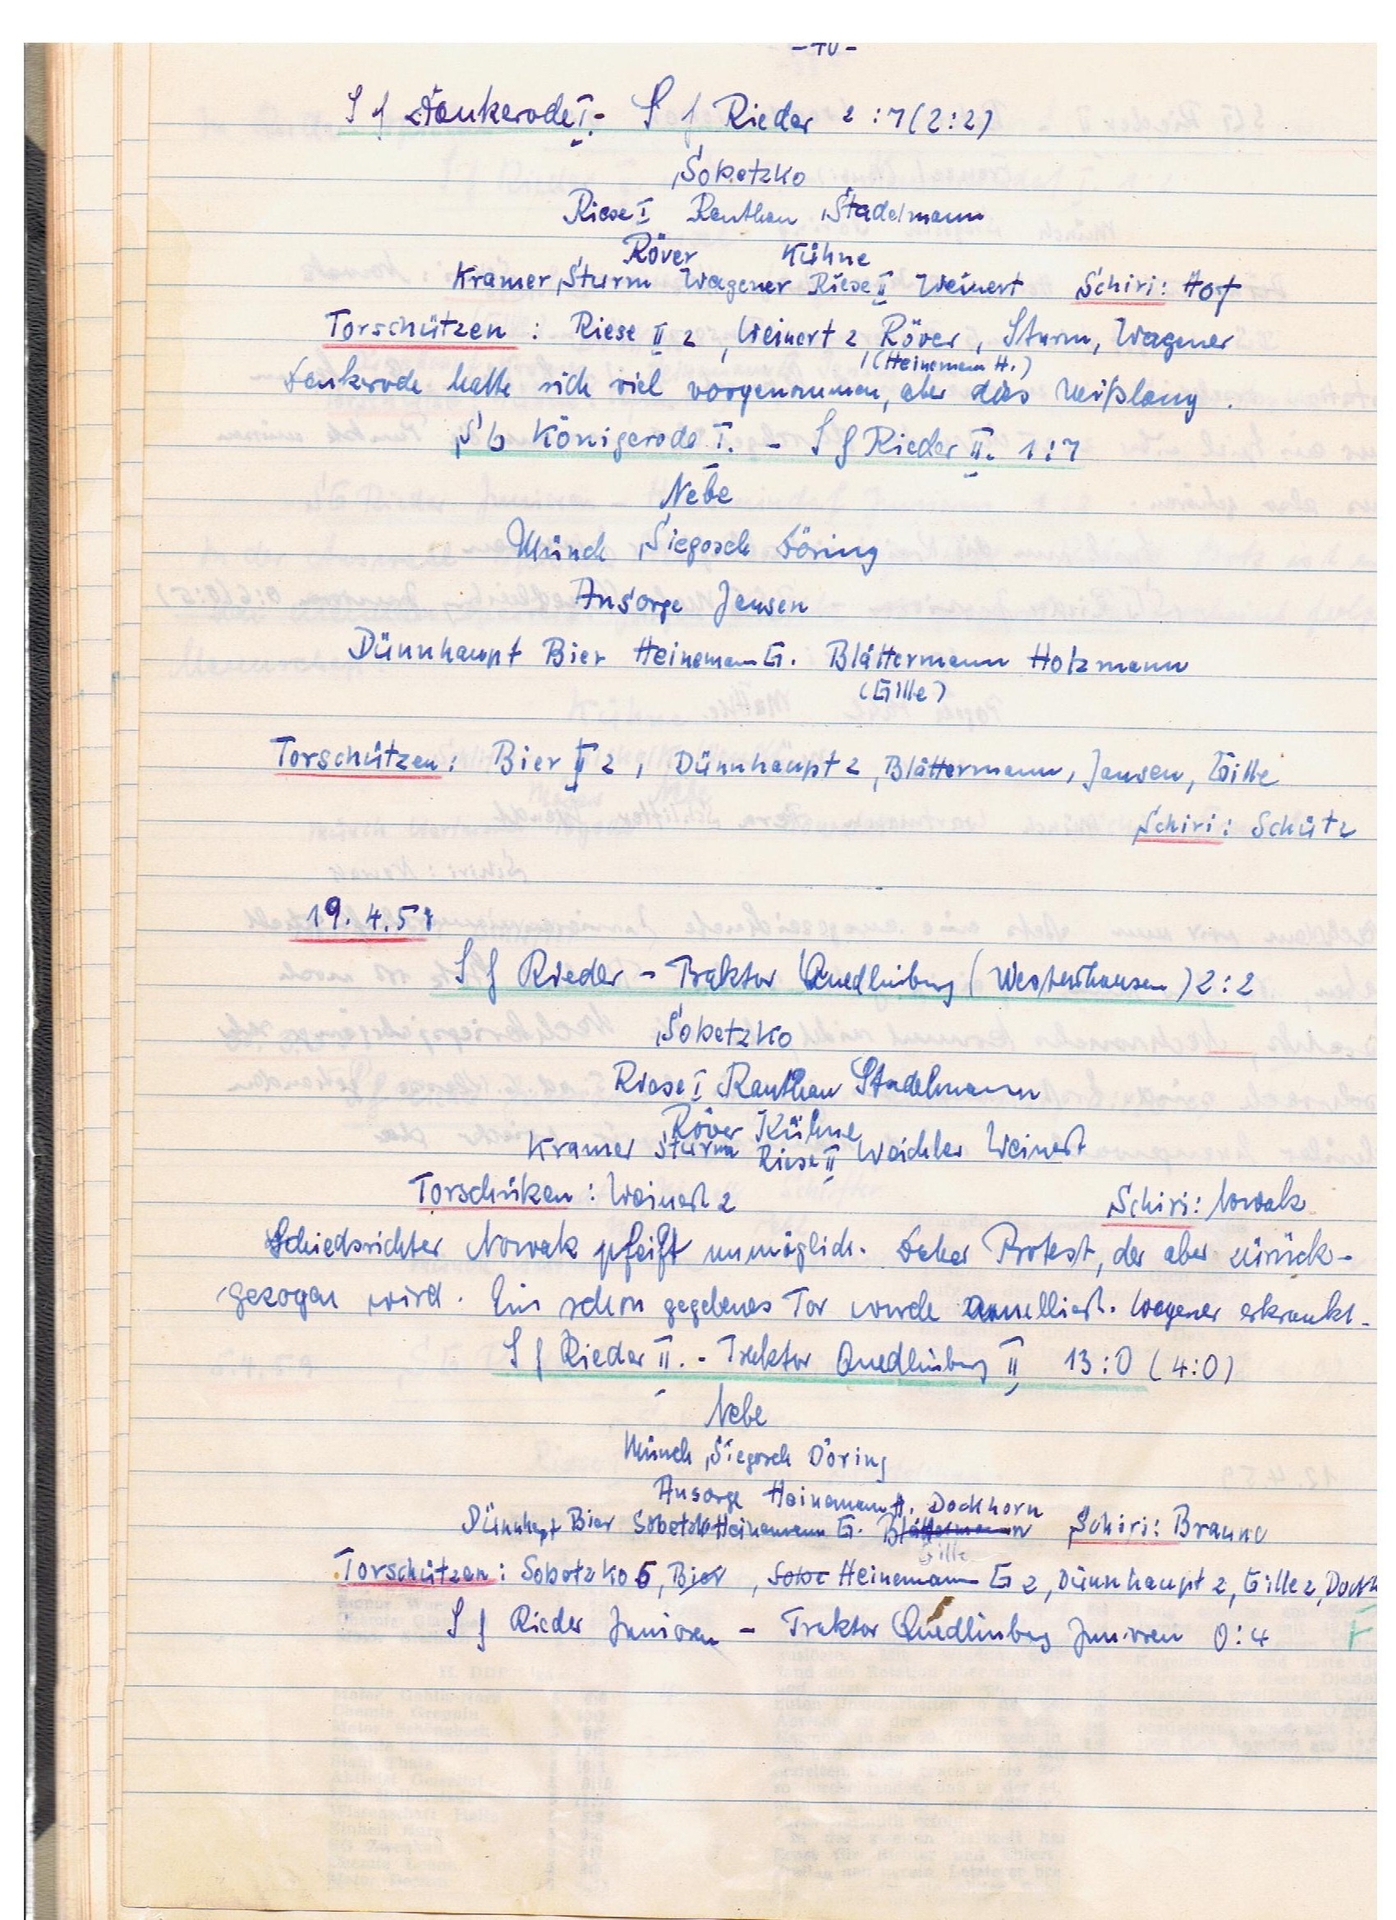 - 40 -
Sf Dankerode I. - Sf Rieder 2:7 (2:2)
Sobotzko
Riese I Ranthan Stadelmann
Röver Kühne
Kramer Sturm Wagener Riese II Weinert Schiri: Hof
Torschützen: Riese II 2, Weinert 2 Röver, Sturm, Wagener
(Heinemann H.)
Dankerode hatte sich viel vorgenommen, aber das mißlang.
Königerode I. - Sf Rieder II. 1:7
Nebe
Münch Siegosch Döring
Ansorge Jansen
Dünnhaupt Bier Heinemann G. Blättermann Holzmann
(Gille)
Torschützen: Bier II 2, Dünnhaupt 2, Blättermann, Jansen, Gille
Schiri: Schütz
19.4.59
Sf Rieder - Traktor Quedlinburg (Westerhausen) 2:2
Sobotzko
Riese I Ranthan Stadelmann
Röver Kühne
Kramer Sturm Riese II Weichler Weinert
Torschützen: Weinert 2 Schiri: Nowak
Schiedsrichter Nowak pfeift unmöglich. Daher Protest, der aber zurück-
gezogen wird. Ein schon gegebenes Tor wurde annulliert. Wagener erkrankt.
Sf Rieder II. - Traktor Quedlinburg II 13:0 (4:0)
Nebe
Münch Siegosch Döring
Ansorge Heinemann H. Dockhorn
Dünnhapt Bier Sobotzko Heinemann G. Blättermann Schiri: Brauno
Gille
Torschützen: Sobotzko 6, Bier, Heinemann G 2, Dünnhaupt 2, Gille 2, Dockh
Sf Rieder Junioren - Traktor Quedlinburg Junioren 0:4